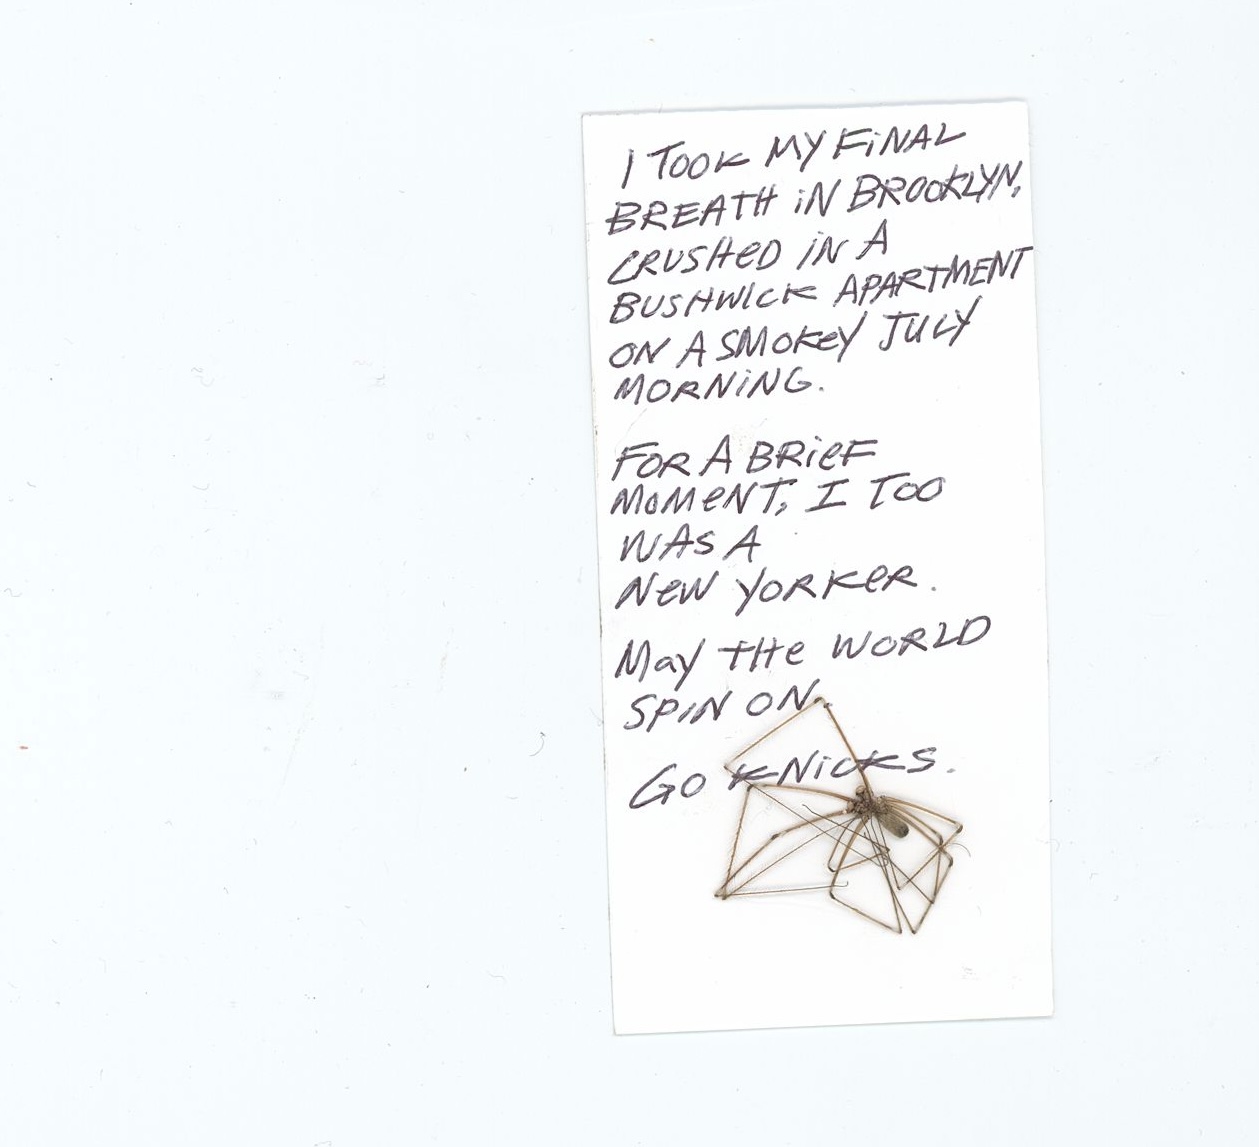 I TOOK MY FINAL
BREATH IN BROOKLYN,
CRUSHED IN A
BUSHWICK APARTMENT
ON A SMOKEY JULY
MORNING.
FOR A BRIEF
MOMENT, I TOO
WAS A
NEW YORKER.
MAY THE WORLD
SPIN ON.
GO KNICKS.